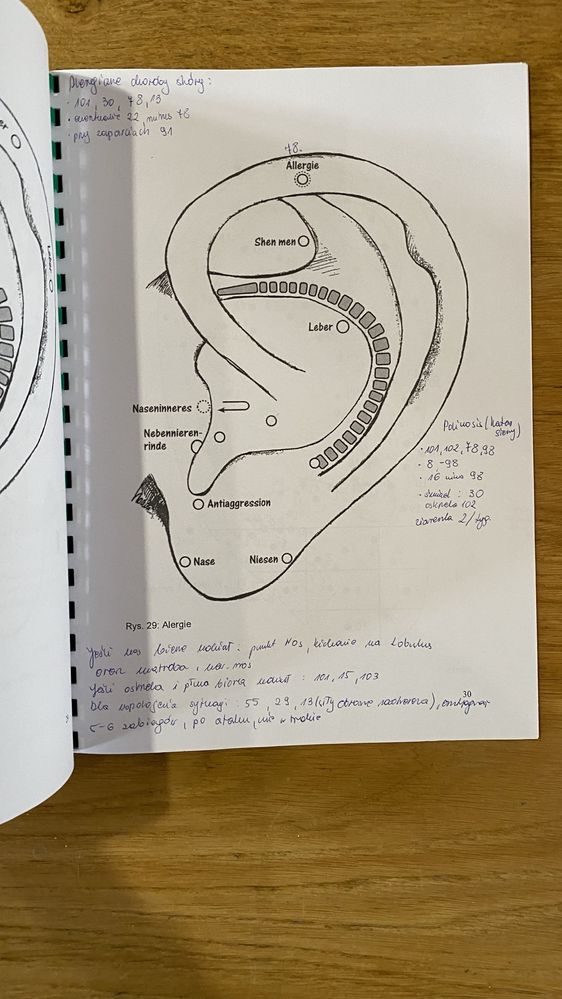 Alergiczne choroby skóry:
• 101, 30, 78, 13
• ewentualnie 22, minus 78
• przy zaparciach 91
78.
Allergie
Shen men
Leber
Naseninneres
Nebennieren-
rinde
Antiaggression
Nase
Niesen
Polinosis (katar
sienny)
• 101, 102, 78, 98
• 8, -98
• 16 minus 98
: 30
oskrzela 102
ziarenka 2/tyg.
Rys. 29: Alergie
Jeśli nos bierze udział: punkt Nos, kichanie na Lobulus
oraz wątroba, wew. nos
Jeśli oskrzela i płuca biorą udział: 101, 15, 103
30
Dla uspokojenia sytuacji: 55, 29, 13 (siły obronne nadnercza),
5-6 zabiegów, po ataku, nie w trakcie